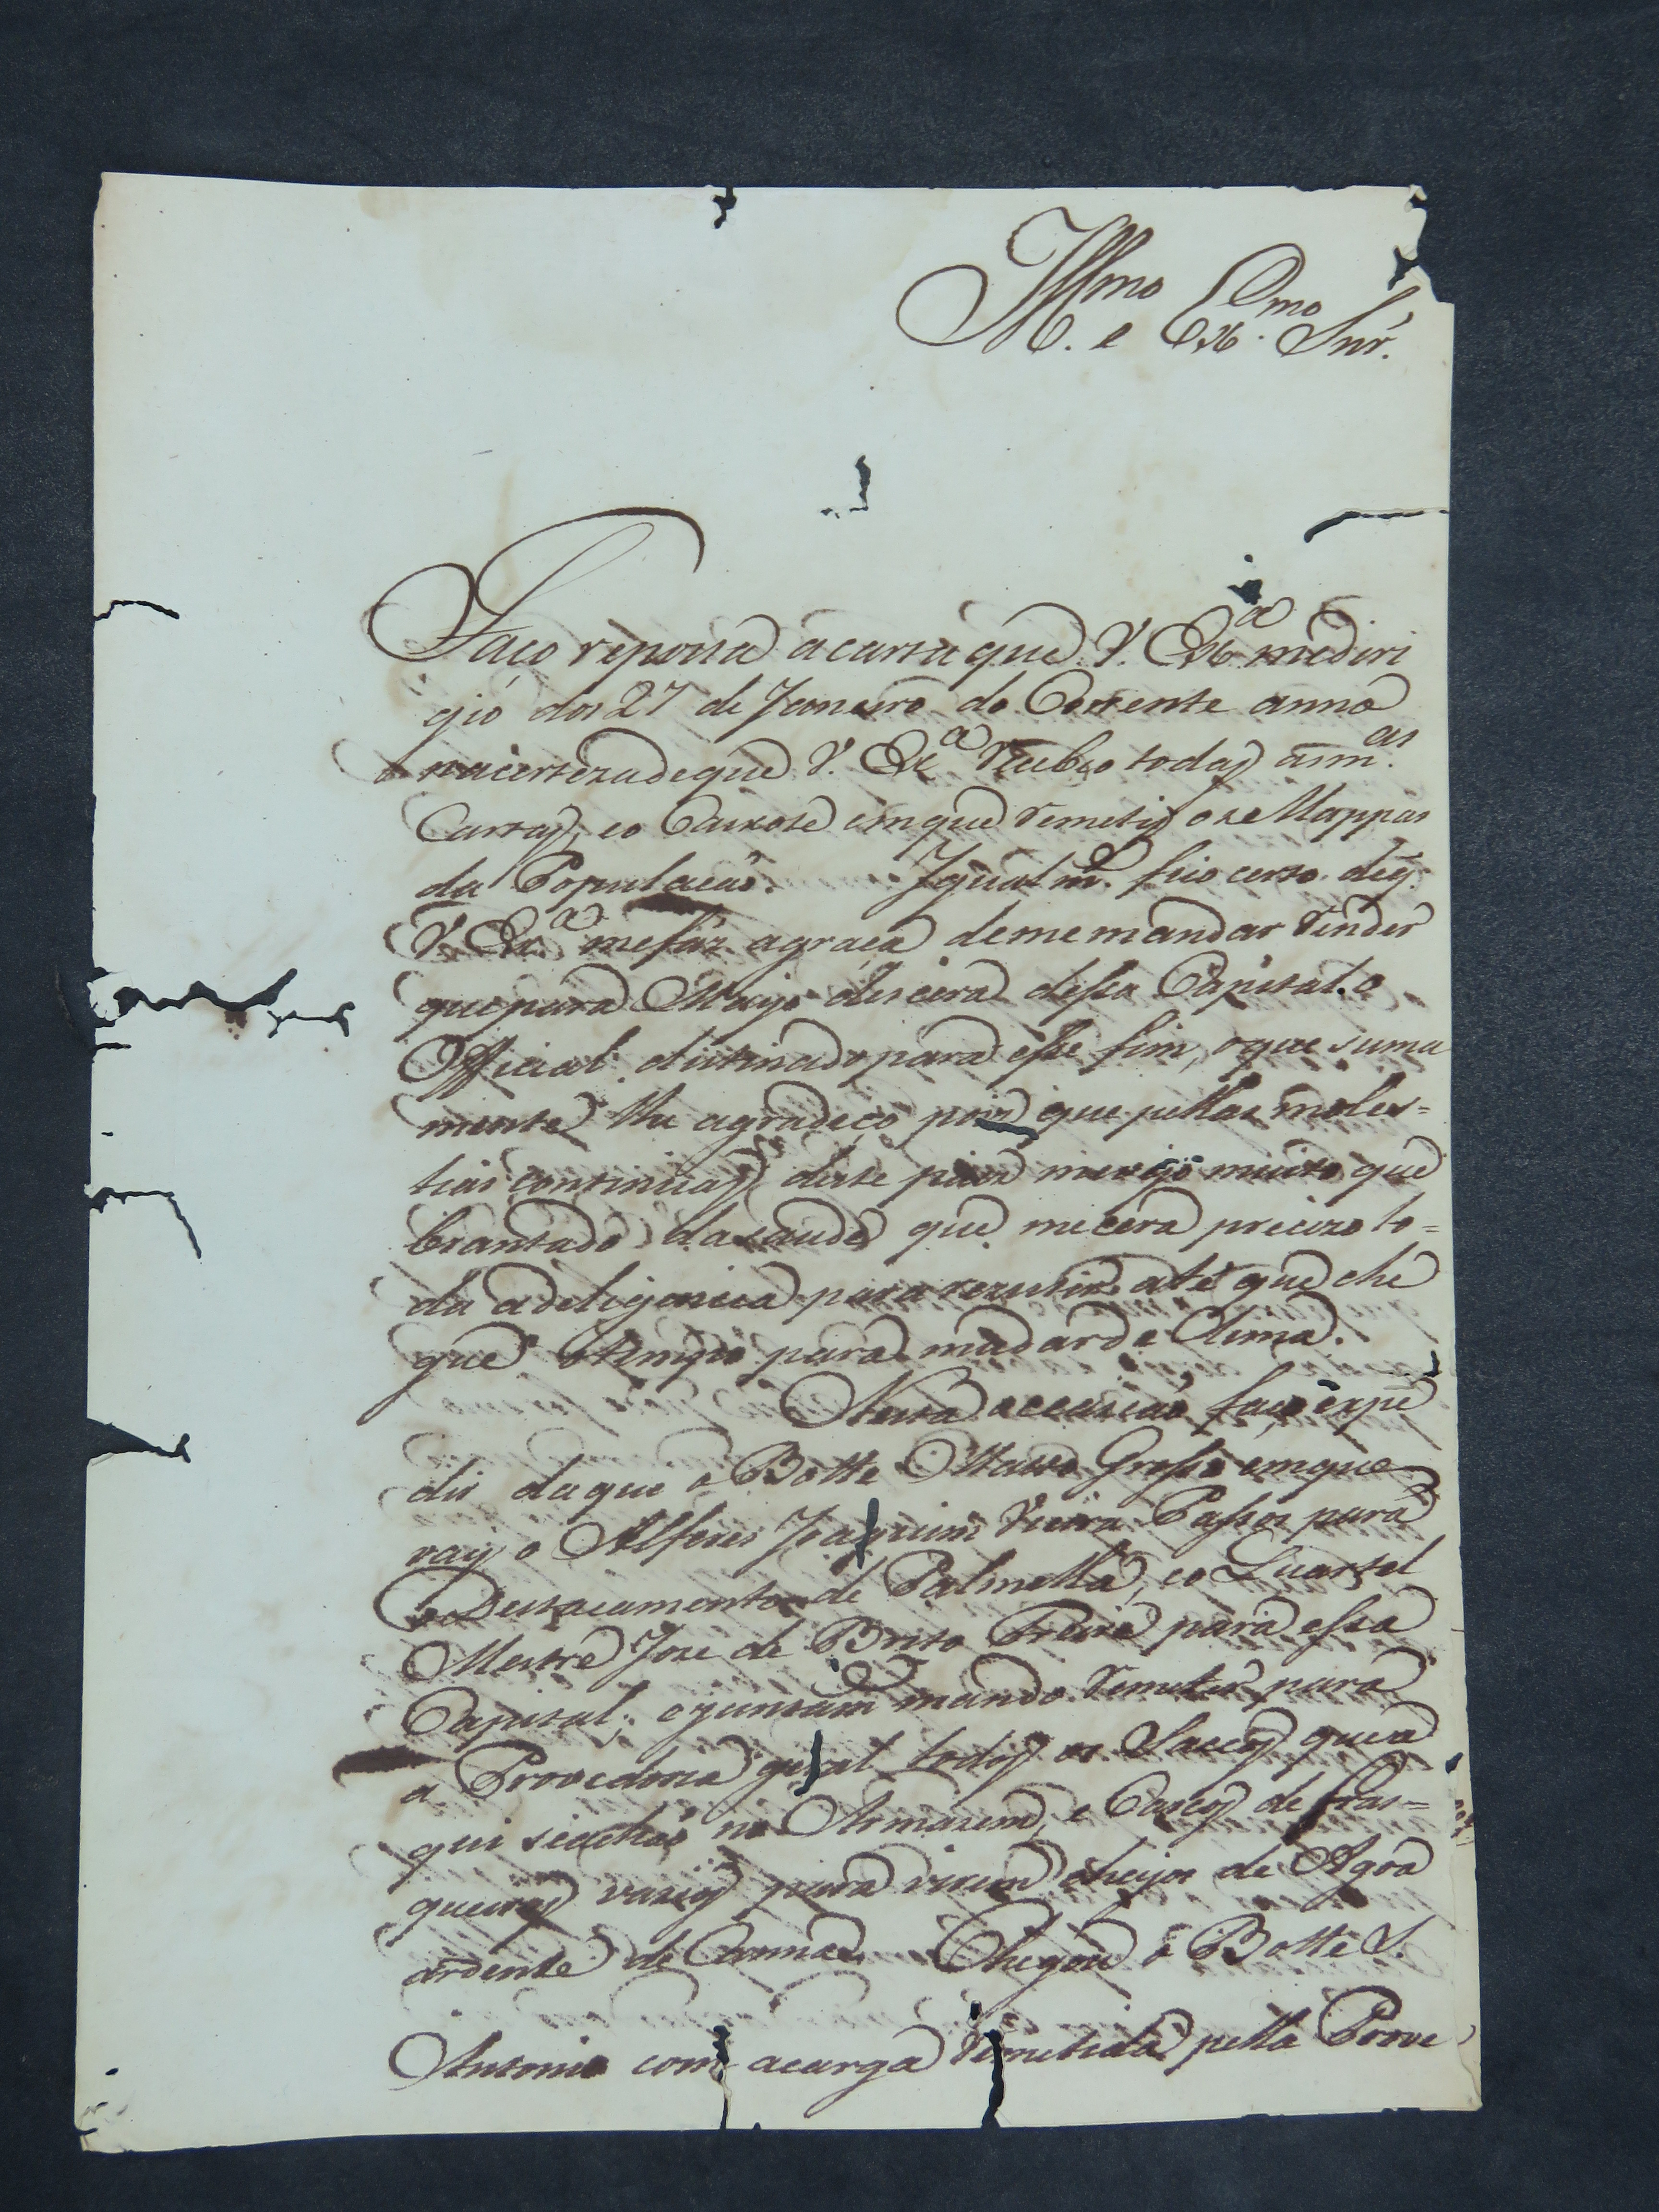 Ill.mo e Ex.mo Snr.
Faço reposta a carta que V. Ex.a me diri
gio dos 27 de Janeiro do Corrente anno
na certeza de que V. Ex.a Recebeo todas as m.as
Cartas, e o Caixote em que Remetij os Mappas
da Populacaõ. Igualm.e fico certo de q̃
V. Ex.a me faz a graça de me mandar Render
que para Mayo descera dessa Capital o
Official distinado para esse fim, o que suma
mente lhe agradeço pois que pellas moles=
tias continuas deste paiz me vejo muito que
brantado da saude que me cera precizo to=
da a deligencia para rezistir até que che
gue o tempo para mudar de Clima.
Nesta occaziaõ faço expe
dir daque o Botte Matto Grosso em que
vay o Alferes Joaquim Vieira Passos para
o Destacamento de Palmella, e o Quartel
Mestre Joze de Brito Freire para essa
Capital; e juntam.e mando Remeter para
a Provedoria geral todos os Saccos que a
qui se achaõ no Armazem, e Cascos de fras=
queiras vazios para virem cheyos de Agoa
ardente de Canna. Chegou o Botte S.
Antonio com a carga Remetida pella Prove